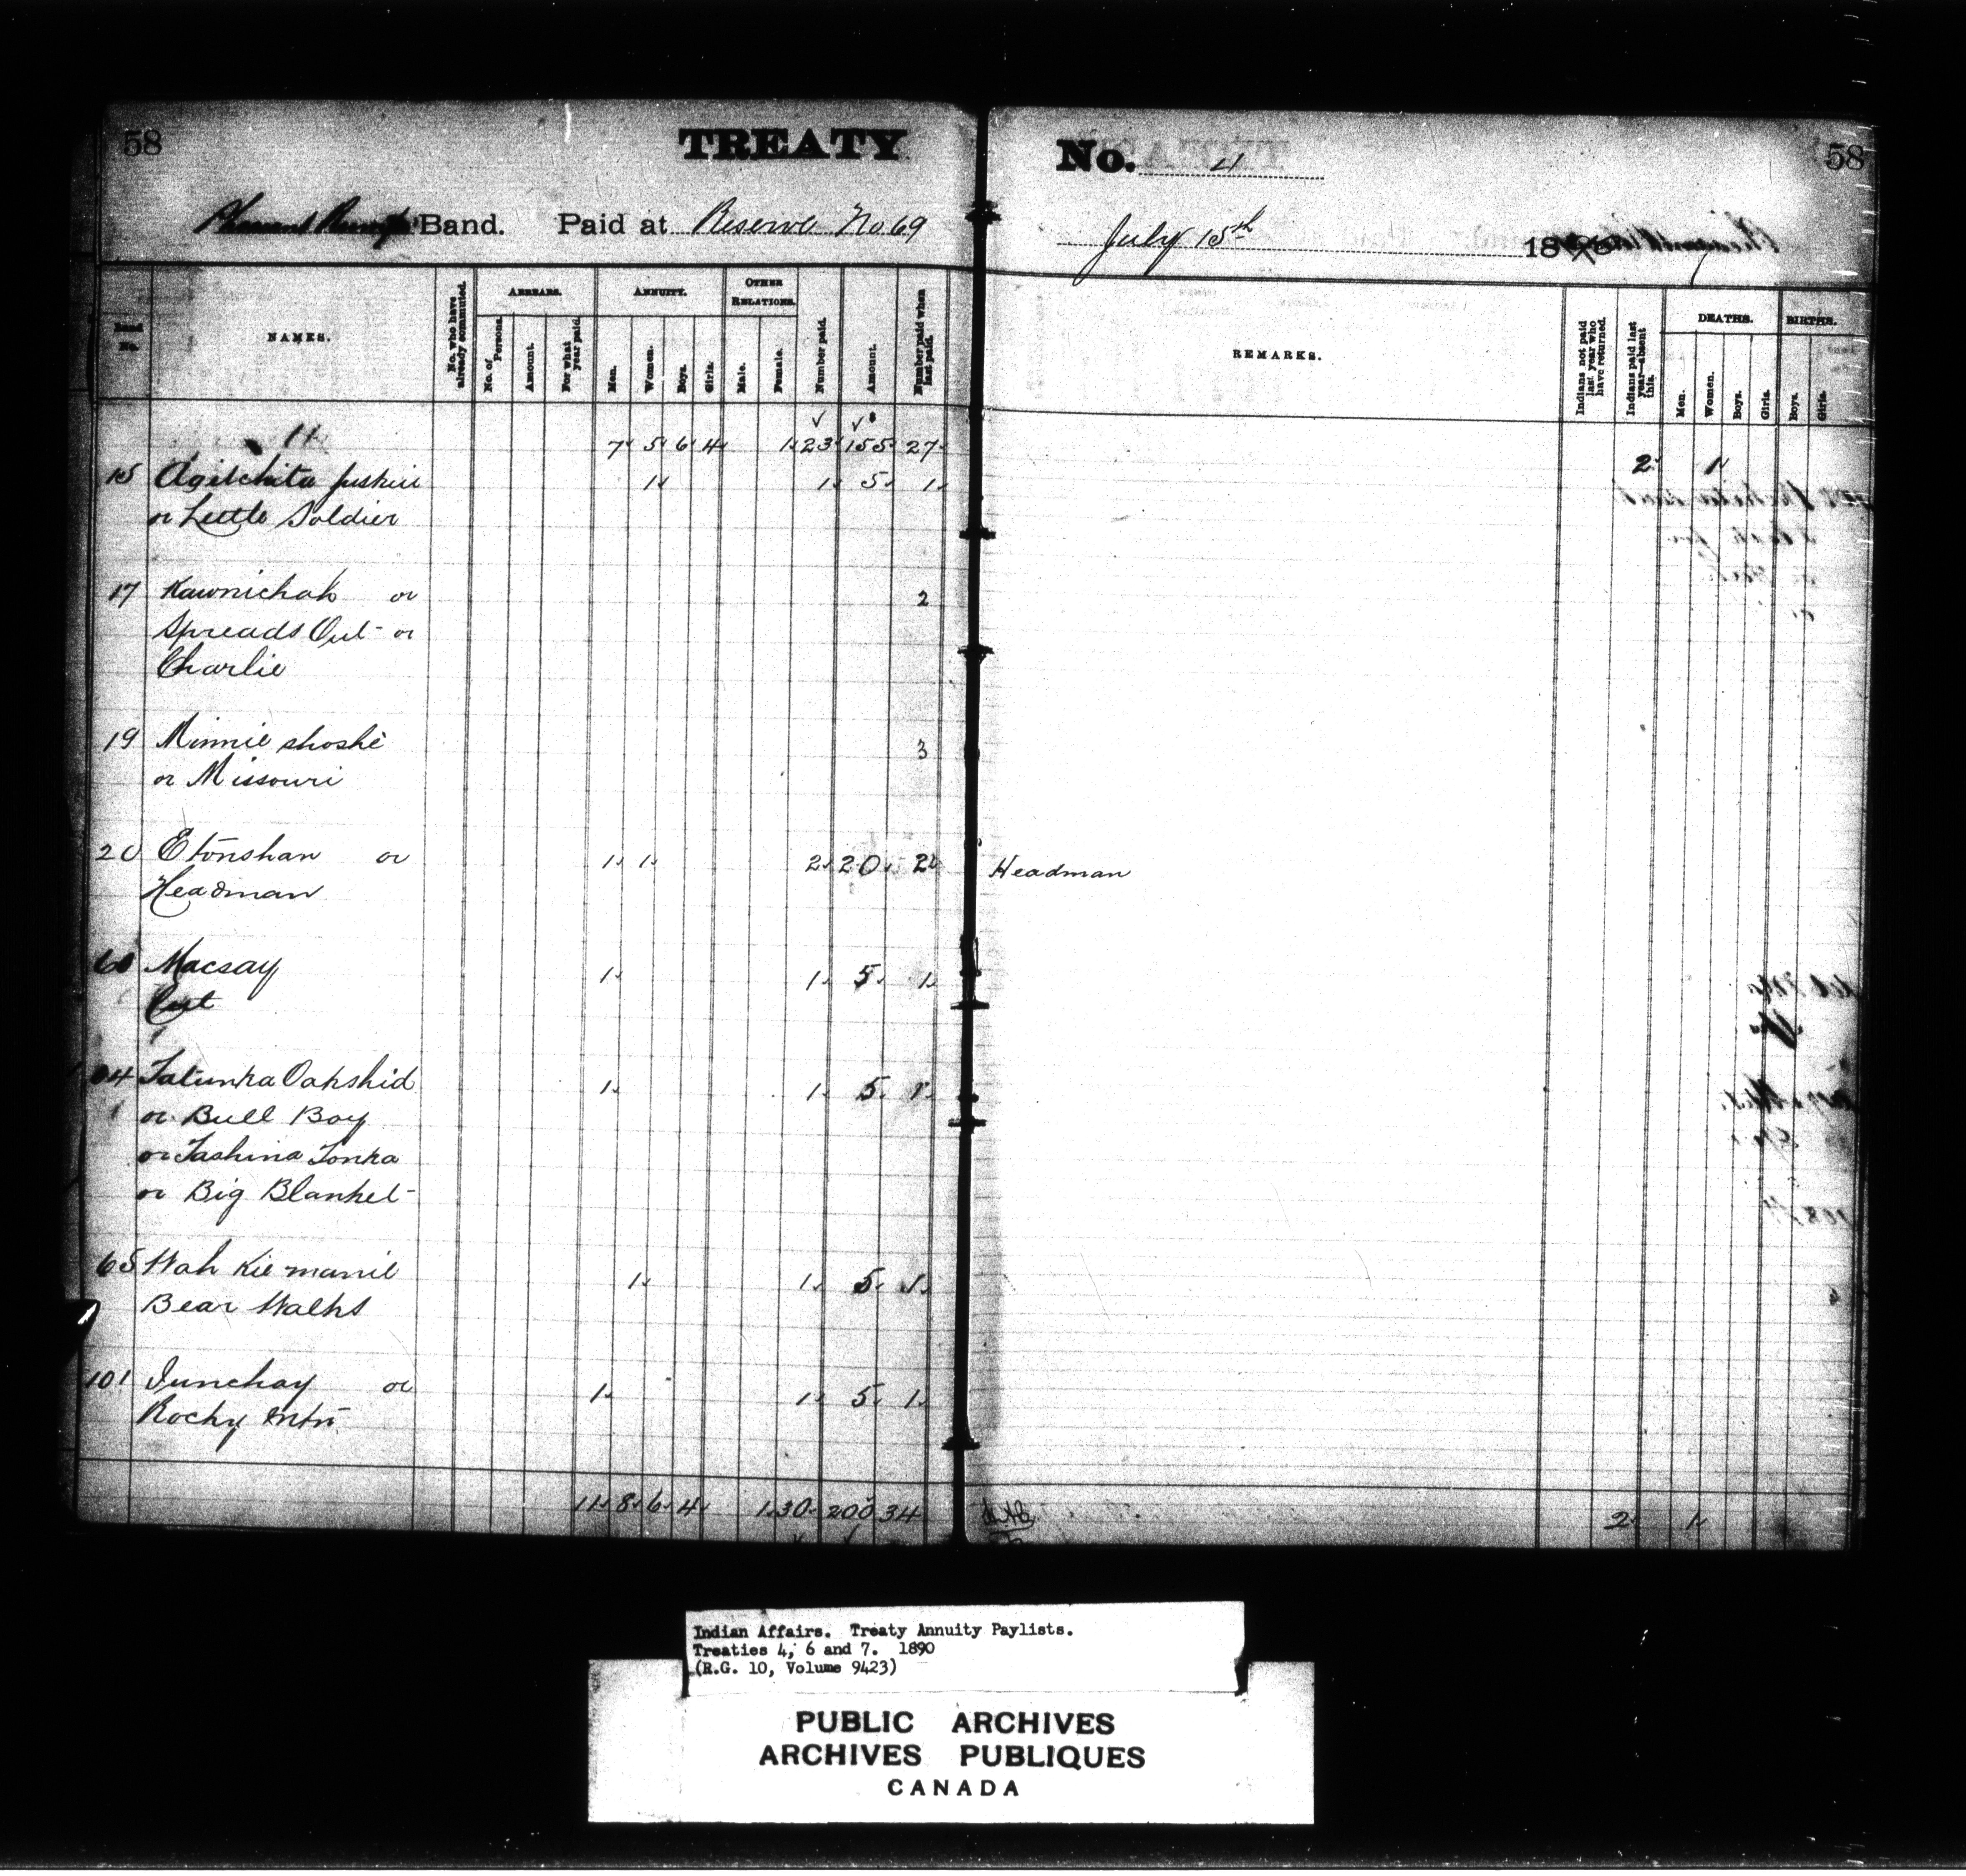 58
TREATY
Band. Paid at Reserve No 69
Band No.
NAMES.
No. who have already commuted.
ARREARS.
No. of Persons.
Amount.
For what year paid.
ANNUITY.
Men.
Women.
Boys.
Girls.
OTHER RELATIONS.
Male.
Female.
Number paid.
Amount.
Number paid when last paid.
11 7 5 6 4 1 23 155 27
15 1 1 5 1
or Little Soldier
17 Kawnichak or 2
Spreads Out or
Charlie
19 Minnie shoshe 3
or Missouri
20 Etonshan or 1 1 2 20 2
Headman
60 Macsay 1 1 5 1
Cut
104 Tatunka Oakshid 1 1 5 1
or Bull Boy
or Tashina Tonka
or Big Blanket
65 Wah Kie manie 1 1 5 1
Bear Walks
101 Junchay or 1 1 5 1
Rocky Mtn
11 8 6 4 1 30 200 34
No. 4
58
July 15th 18
REMARKS.
Indians not paid last year who have returned.
Indians paid last year—absent this.
DEATHS.
Men.
Women.
Boys.
Girls.
BIRTHS.
Boys.
Girls.
2 1
Headman
2 1
Indian Affairs. Treaty Annuity Paylists.
Treaties 4, 6 and 7. 1890
(R.G. 10, Volume 9423)
PUBLIC ARCHIVES
ARCHIVES PUBLIQUES
CANADA